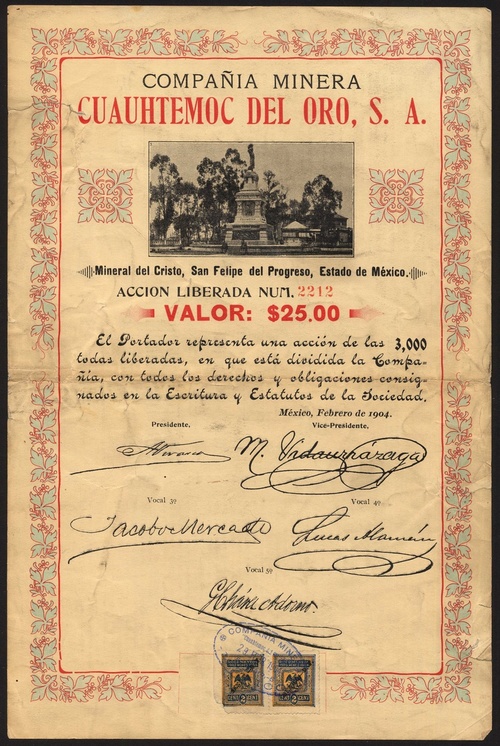 COMPAÑIA MINERA
CUAUHTEMOC DEL ORO, S. A.
Mineral del Cristo, San Felipe del Progreso, Estado de México.
ACCION LIBERADA NUM. 2212
VALOR: $25.00
El Portador representa una acción de las 3,000
todas liberadas, en que está dividida la Compa-
ñía, con todos los derechos y obligaciones consig-
nados en la Escritura y Estatutos de la Sociedad.
México, Febrero de 1904.
Presidente. Vice-Presidente.
M. Vidaurrázaga
Vocal 3º Vocal 4º
Jacobo Mercado Lucas Alamán
Vocal 5º
COMPAÑIA MINE
2 CENT 2 CENT